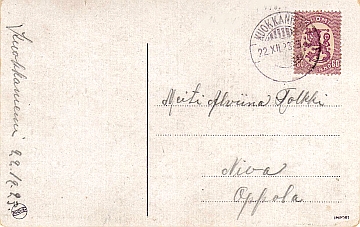 Kuokkaniemi 22.12.23
KUOKKANIEMI
22.XII.23
SUOMI
60
Neiti Alviina Tolkki
Niva
Oppola